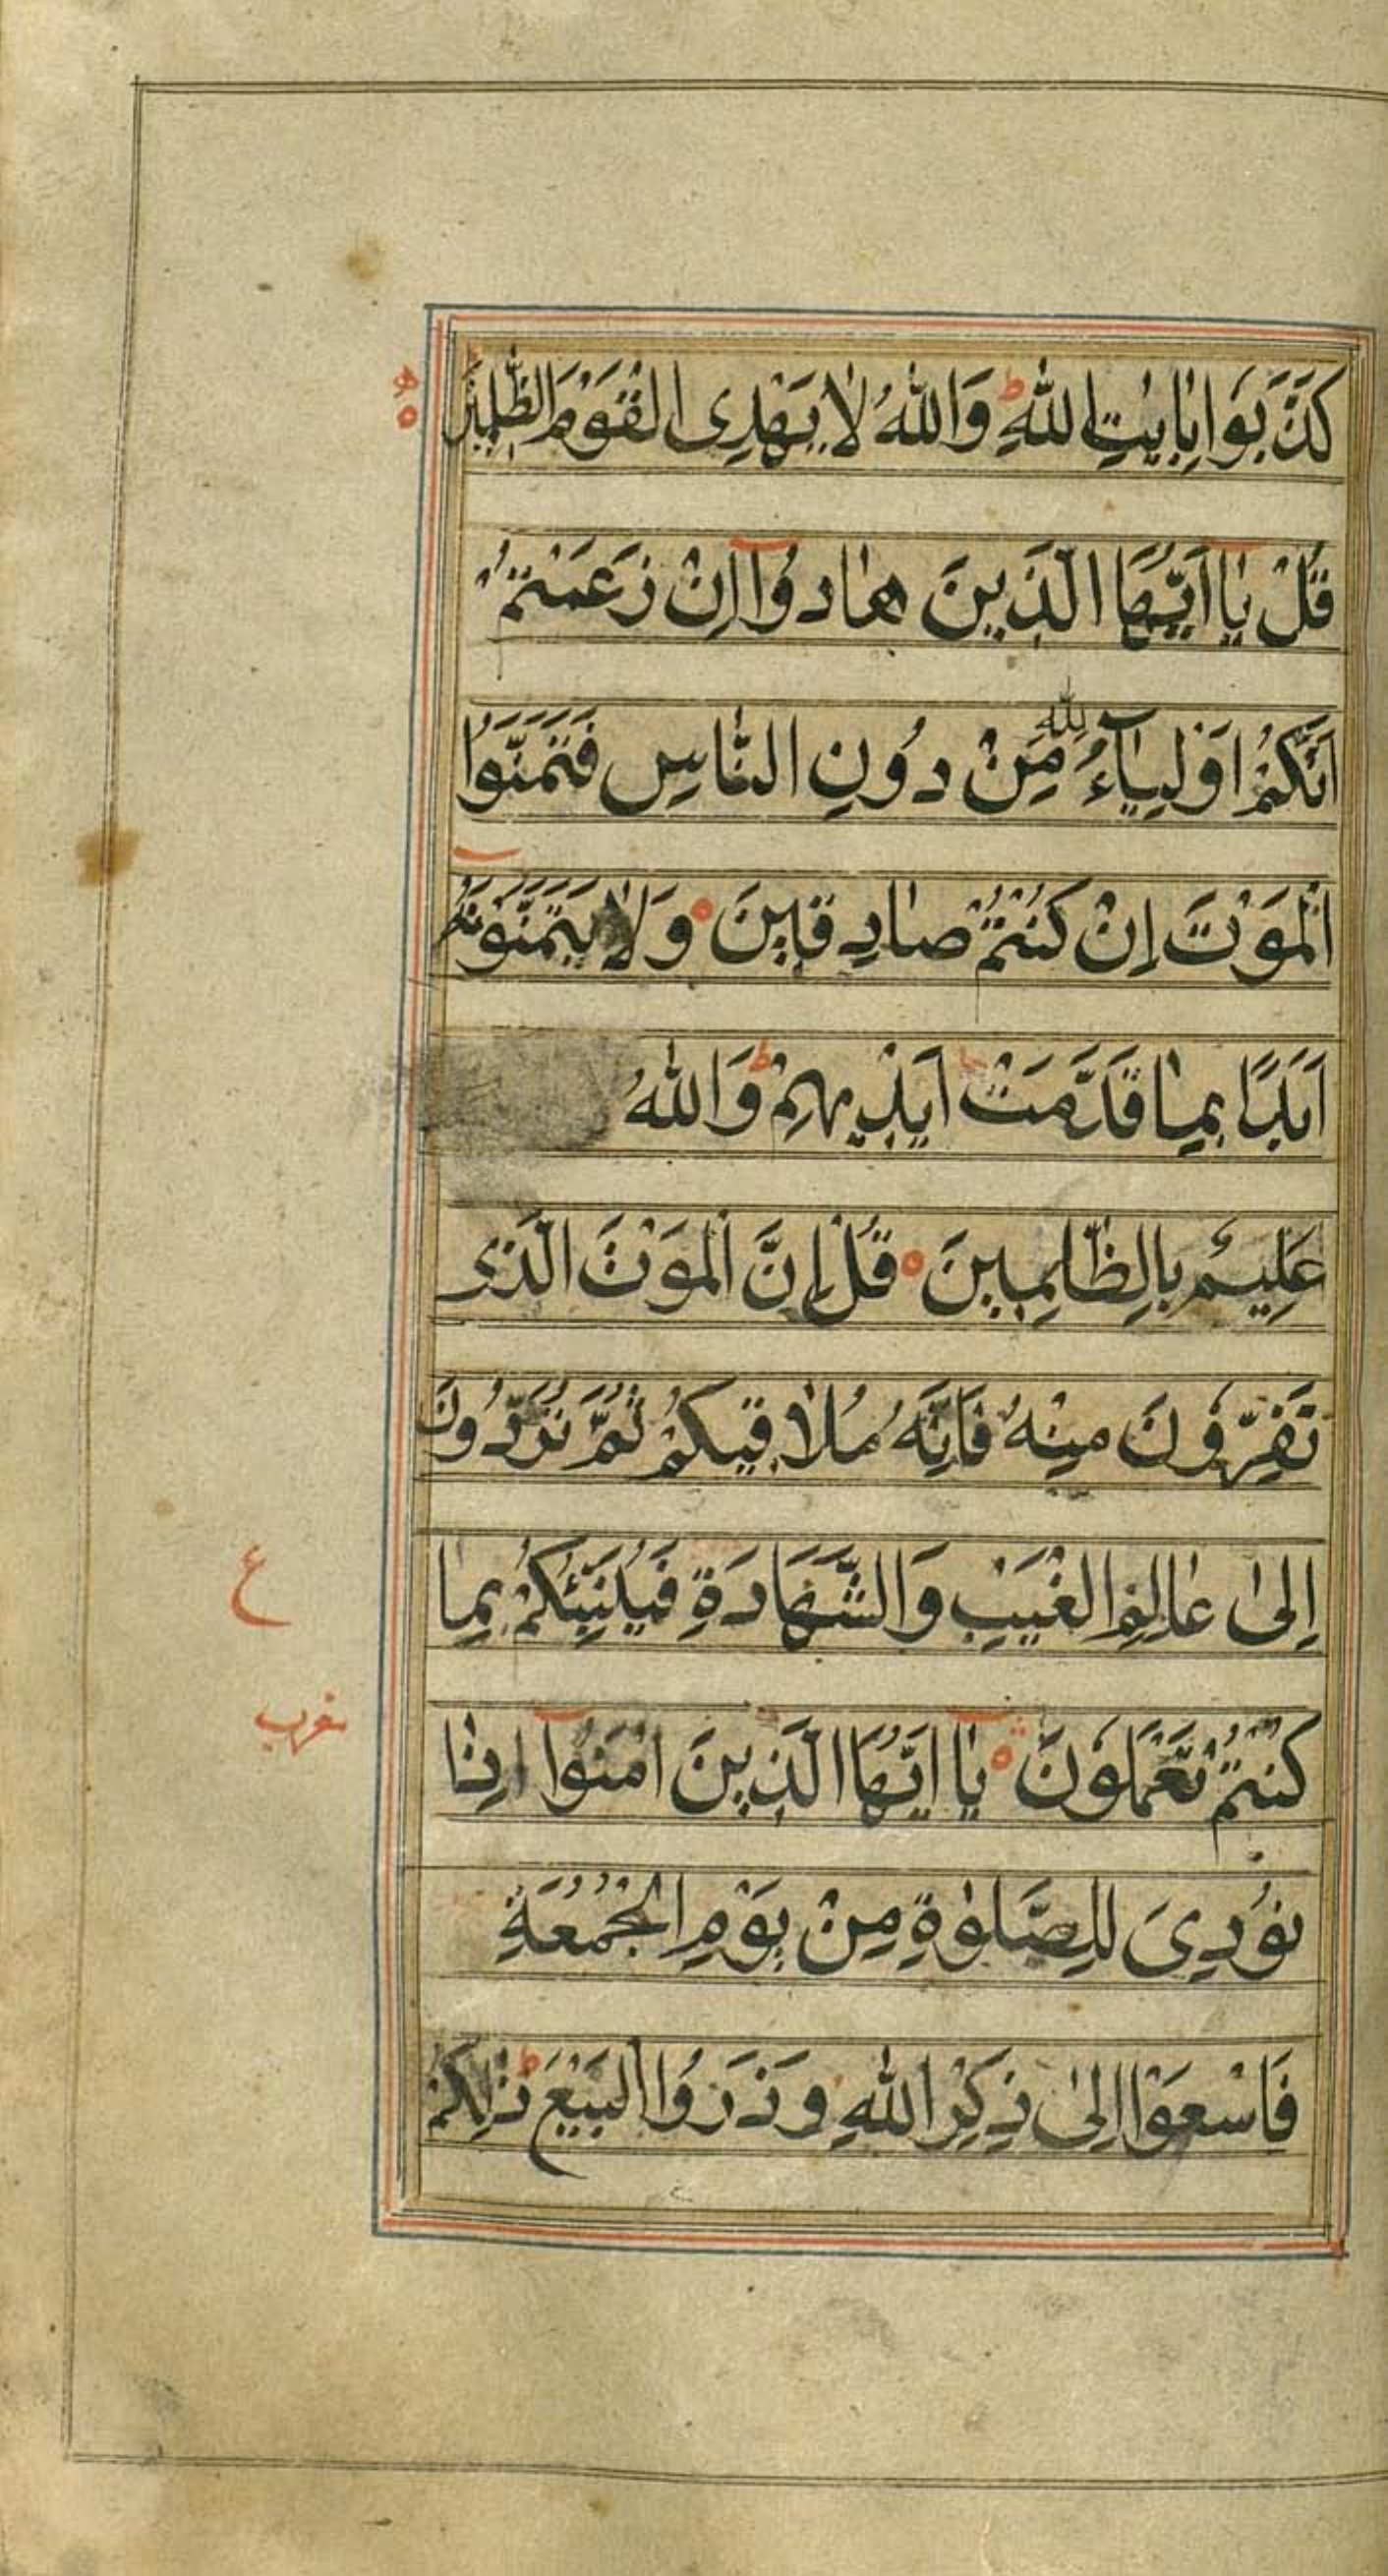 كَذَّبَوا بِاٰيٰتِ اللّٰهِ ط وَاللّٰهُ لَا يَهْدِى الْقَوْمَ الظّٰلِمِيْنَ
قُلْ يٰاۤ اَيُّهَا الَّذِينَ هٰادُوۤا اِنْ زَعَمْتُمْ
اَنَّكُمْ اَوْلِيٰۤاءُ لِلّٰهِ مِّنْ دُونِ النّٰاسِ فَتَمَنَّوُا
الْمَوْتَ اِنْ كُنْتُمْ صٰادِقِينَ ۝ وَلٰا يَتَمَنَّوْنَهُ
اَبَدًا بِمٰا قَدَّمَتْ اَيْدِيهِمْ ط وَاللّٰهُ
عَلِيمٌ بِالظّٰالِمِينَ ۝ قُلْ اِنَّ الْمَوْتَ الَّذى
تَفِرُّونَ مِنْهُ فَاِنَّهُ مُلٰاقِيكُمْ ثُمَّ تُرَدُّونَ
اِلىٰ عٰالِمِ الْغَيْبِ وَالشَّهَادَةِ فَيُنَبِّئُكُمْ بِمٰا
ع
كُنْتُمْ تَعْمَلُونَ ۝ يٰاۤ اَيُّهَا الَّذِينَ اٰمَنُوۤا اِذٰا
نُودِىَ لِلصَّلٰوةِ مِنْ يَوْمِ الْجُمُعَةِ
فَاسْعَوْا اِلىٰ ذِكْرِ اللّٰهِ وَذَرُوا الْبَيْعَ ط ذٰلِكُمْ